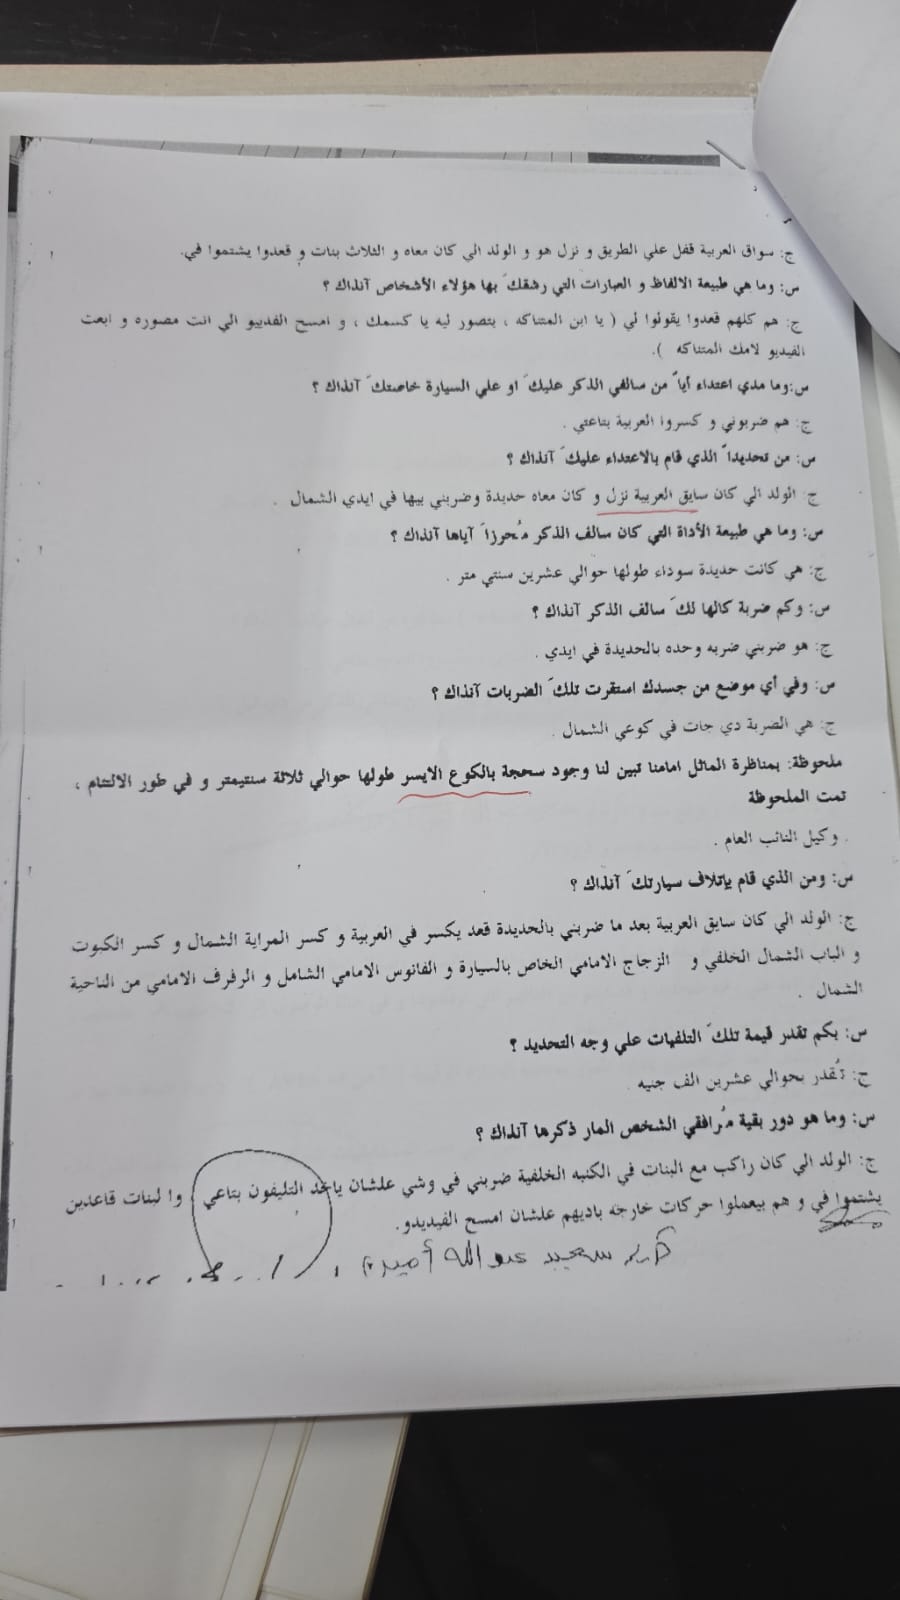 ج: سواق العربية قفل علي الطريق و نزل هو و الولد الي كان معاه و الثلاث بنات و قعدوا يشتموا في.
س: وما هي طبيعة الالفاظ و العبارات التي رشقكَ بها هؤلاء الأشخاص آنذاك ؟
ج: هم كلهم قعدوا يقولوا لي ( يا ابن المتناكه ، بتصور ليه يا كسمك ، و امسح الفديو الي انت مصوره و ابعت
الفيديو لامك المتناكه ).
س:وما مدي اعتداء أياً من سالفي الذكر عليكَ او علي السيارة خاصتكَ آنذاك ؟
ج: هم ضربوني و كسروا العربية بتاعتي .
س: من تحديداً الذي قام بالاعتداء عليكَ آنذاك ؟
ج: الولد الي كان سايق العربية نزل و كان معاه حديدة وضربني بيها في ايدي الشمال .
س: وما هي طبيعة الأداة التي كان سالف الذكر مُحرزاَ آياها آنذاك ؟
ج: هي كانت حديدة سوداء طولها حوالي عشرين سنتي متر .
س: وكم ضربة كالها لكَ سالف الذكر آنذاك ؟
ج: هو ضربني ضربه وحده بالحديدة في ايدي .
س: وفي أي موضع من جسدك استقرت تلكَ الضربات آنذاك ؟
ج: هي الضربة دي جات في كوعي الشمال .
ملحوظة: بمناظرة الماثل امامنا تبين لنا وجود سحجة بالكوع الايسر طولها حوالي ثلاثة سنتيمتر و في طور الالتئام ،
تمت الملحوظة
وكيل النائب العام .
س: ومن الذي قام بإتلاف سيارتكَ آنذاك ؟
ج: الولد الي كان سايق العربية بعد ما ضربني بالحديدة قعد يكسر في العربية و كسر المراية الشمال و كسر الكبوت
و الباب الشمال الخلفي و الزجاج الامامي الخاص بالسيارة و الفانوس الامامي الشامل و الرفرف الامامي من الناحية
الشمال .
س: بكم تقدر قيمة تلكَ التلفيات علي وجه التحديد ؟
ج: تُقدر بحوالي عشرين الف جنيه .
س: وما هو دور بقية مُرافقي الشخص المار ذكرها آنذاك ؟
ج: الولد الي كان راكب مع البنات في الكنبه الخلفية ضربني في وشي علشان ياخد التليفون بتاعي ، وا لبنات قاعدين
يشتموا في و هم بيعملوا حركات خارجه باديهم علشان امسح الفيديو.
سعيد عبد الله أمين